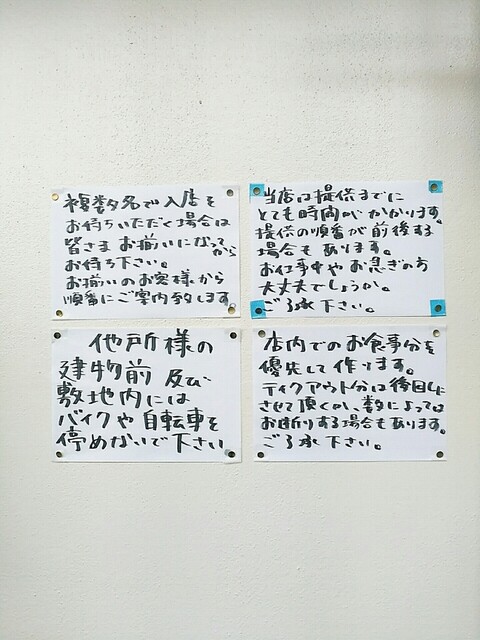 複数名で入店を
お待ちいただく場合は
皆さまお揃いになってから
お待ち下さい。
お揃いのお客様から
順番にご案内致します
当店は提供までに
とても時間がかかります。
提供の順番が前後する
場合もあります。
お仕事中やお急ぎの方
大丈夫でしょうか。
ご了承下さい。
他所様の
建物前及び
敷地内には
バイクや自転車を
停めないで下さい
店内でのお食事分を
優先して作ります。
テイクアウト分は後回しに
させて頂くか、数によっては
お断りする場合もあります。
ご了承下さい。